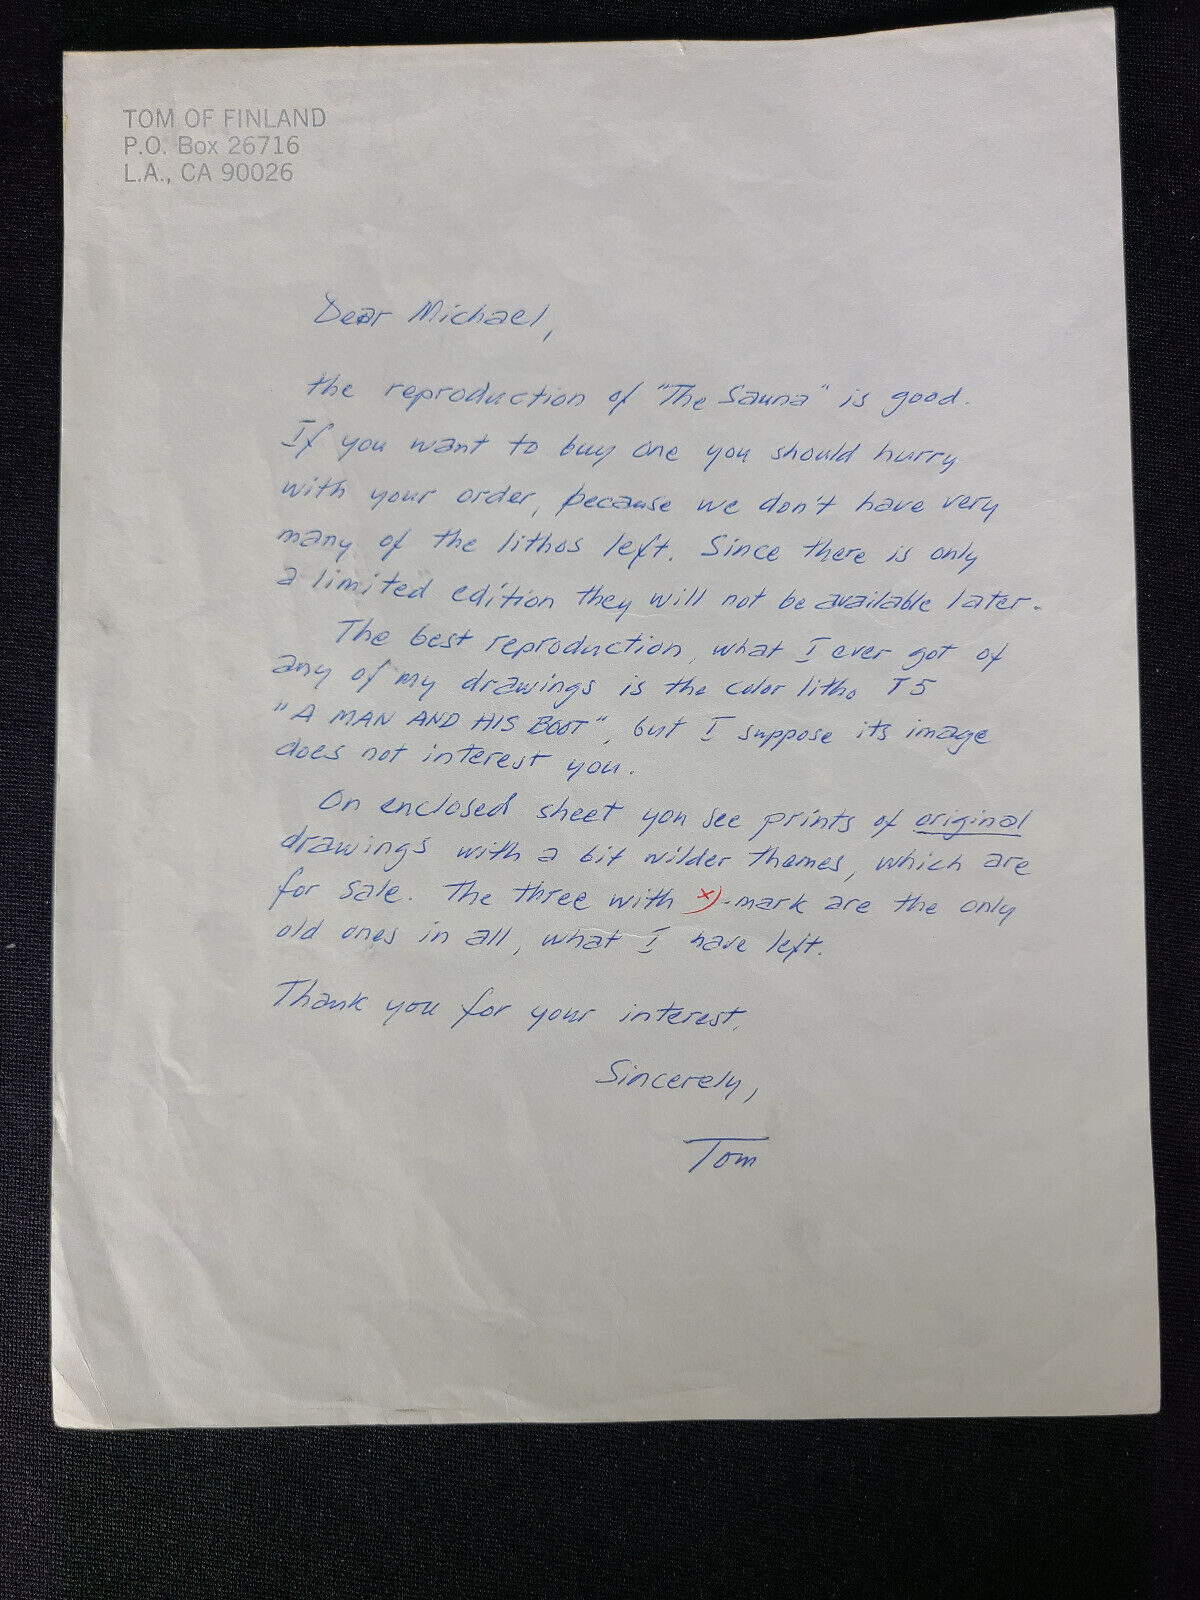 TOM OF FINLAND
P.O. Box 26716
L.A., CA 90026
Dear Michael,
the reproduction of "The Sauna" is good.
If you want to buy one you should hurry
with your order, because we don't have very
many of the lithos left. Since there is only
a limited edition they will not be available later.
The best reproduction, what I ever got of
any of my drawings is the color litho T5
"A MAN AND HIS BOOT", but I suppose its image
does not interest you.
On enclosed sheet you see prints of original
drawings with a bit wilder themes, which are
for sale. The three with x)-mark are the only
old ones in all, what I have left.
Thank you for your interest.
Sincerely,
Tom